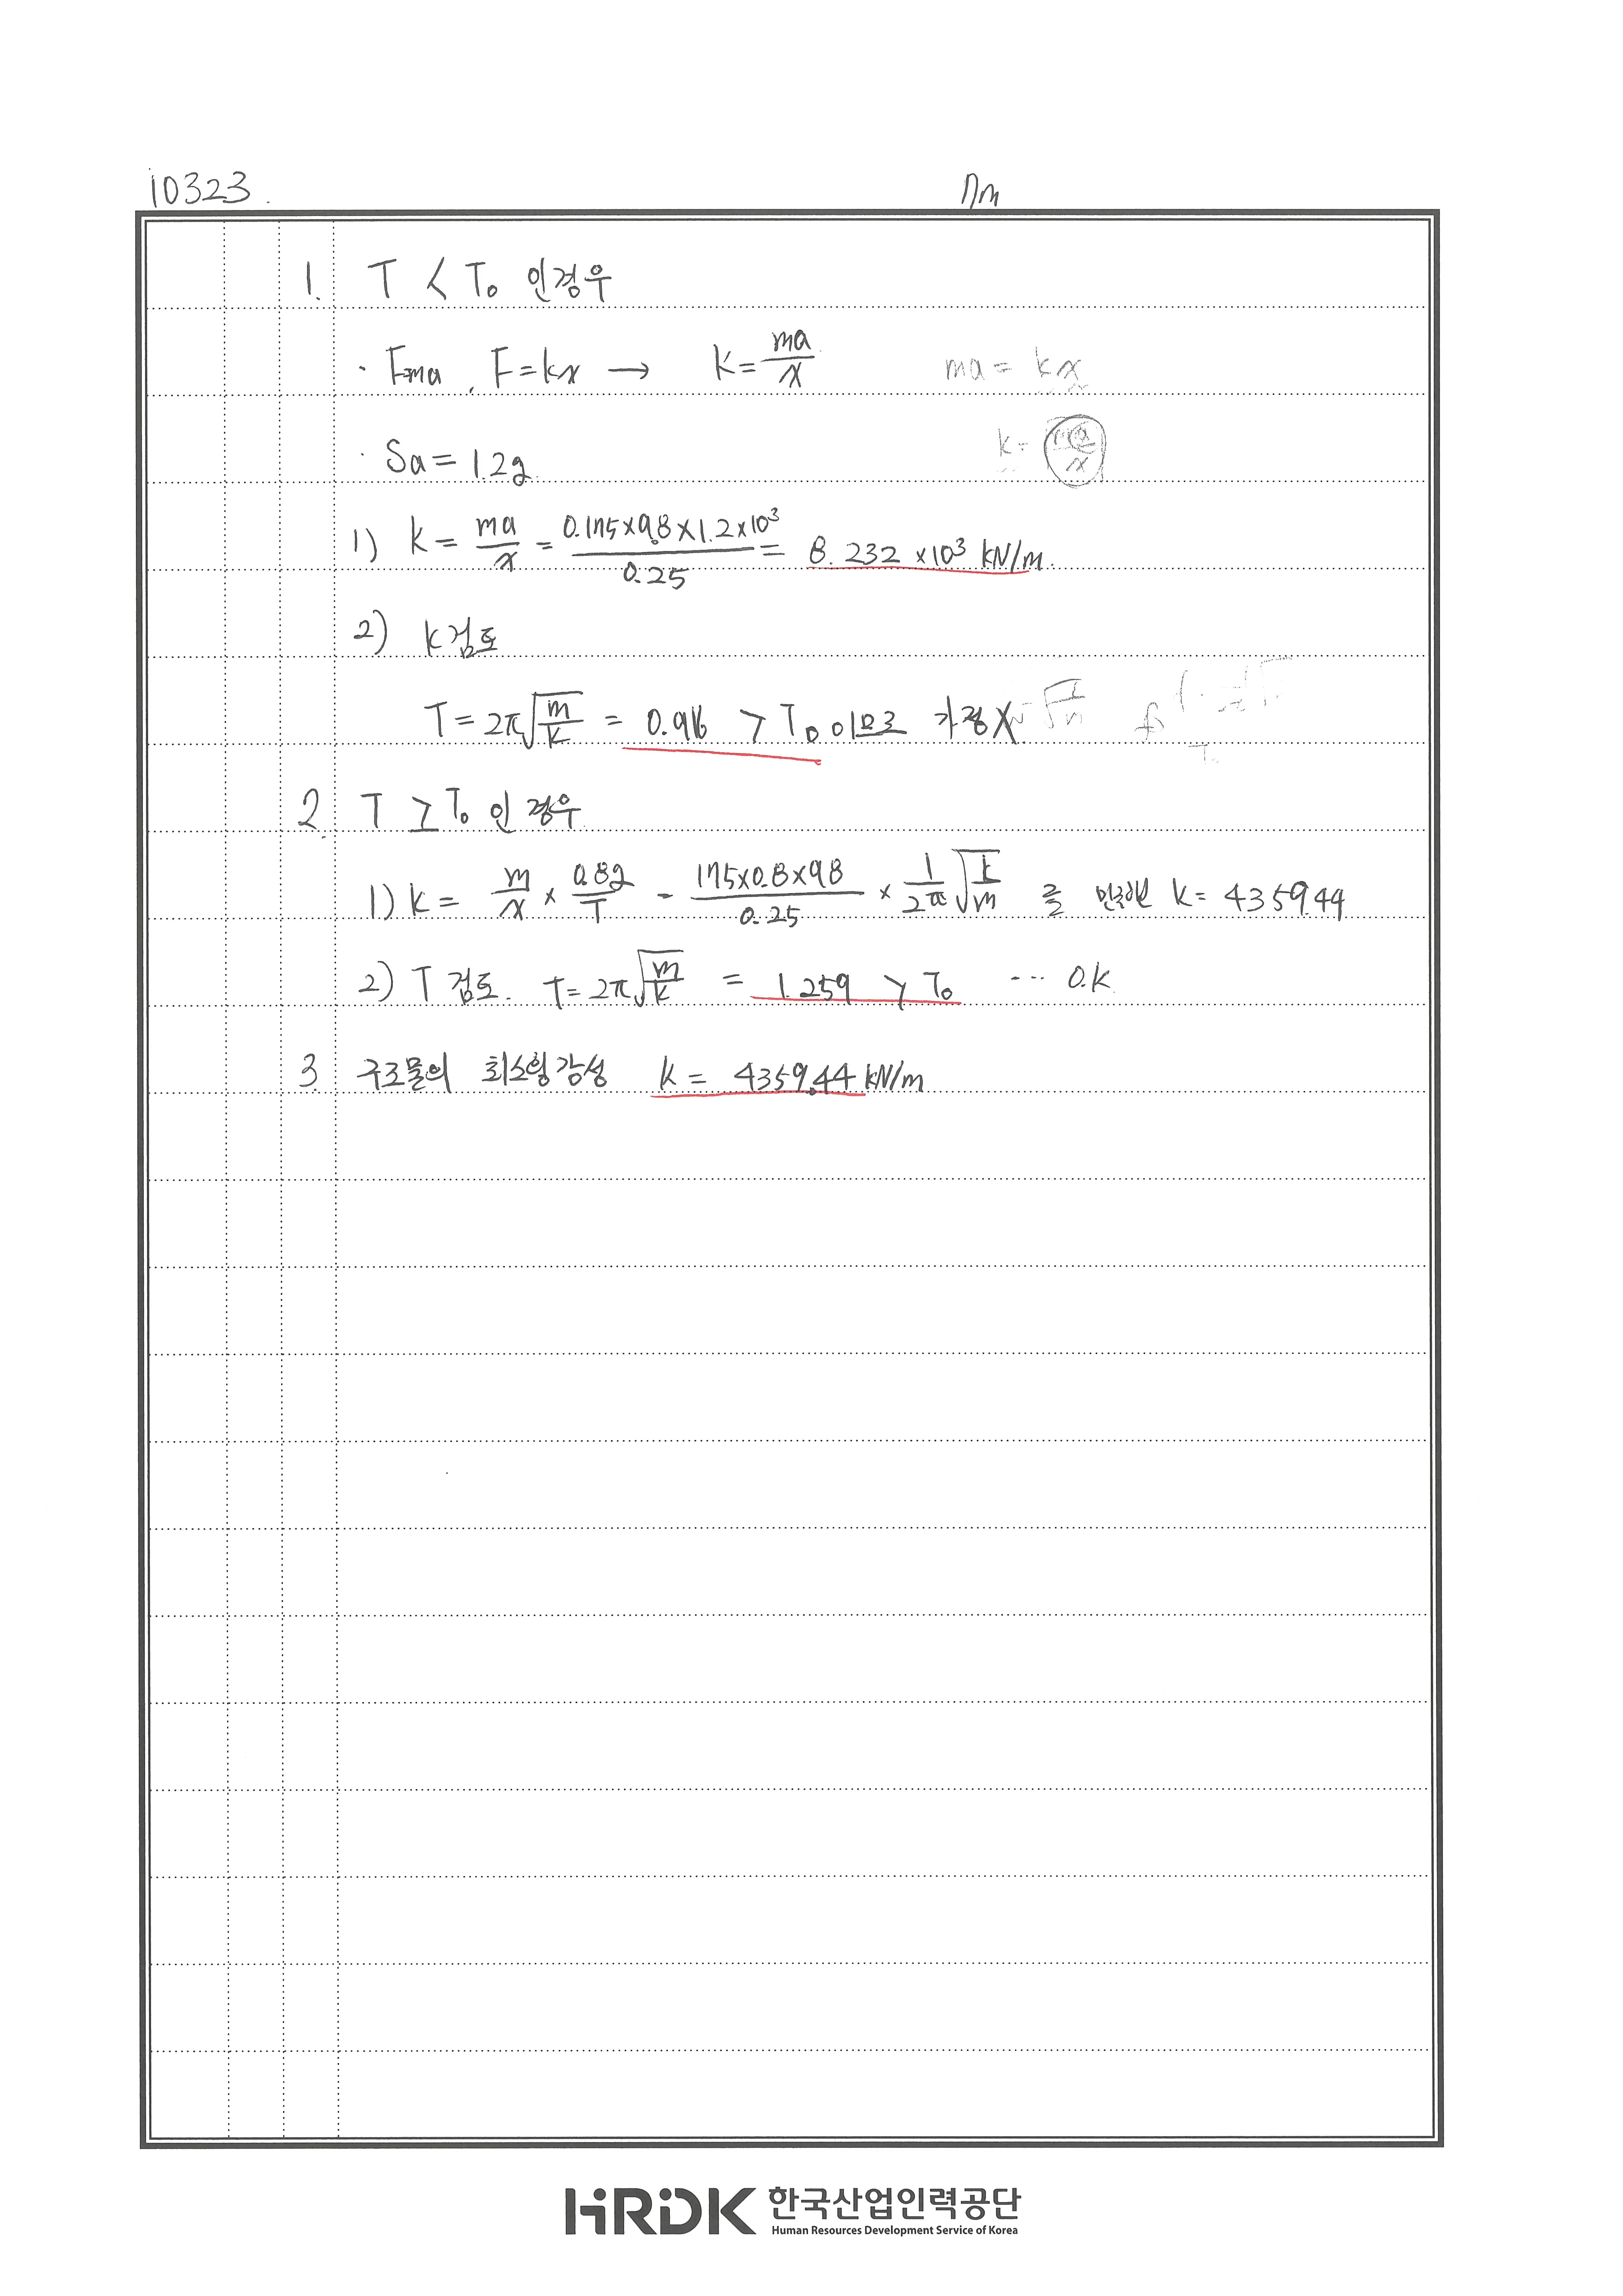 10323.
1. T < T₀ 인경우
· F=ma, F=kx → K = ma/x ma = kx
· Sa = 1.2g k = ma/x
1) k = ma/x = 0.175×9.8×1.2×10³/0.25 = 8.232 ×10³ kN/m.
2) k검토
T = 2π√(m/k) = 0.916 > T₀ 이므로 가정X
2. T ≥ T₀ 인 경우
1) k = m/x × 0.8g/T = 175×0.8×9.8/0.25 × 1/2π √(k/m) 를 k = 4359.44
2) T 검토. T = 2π√(m/k) = 1.259 > T₀ ··· O.K
3. 구조물의 최소휨강성 k = 4359.44 kN/m
HRDK 한국산업인력공단
Human Resources Development Service of Korea